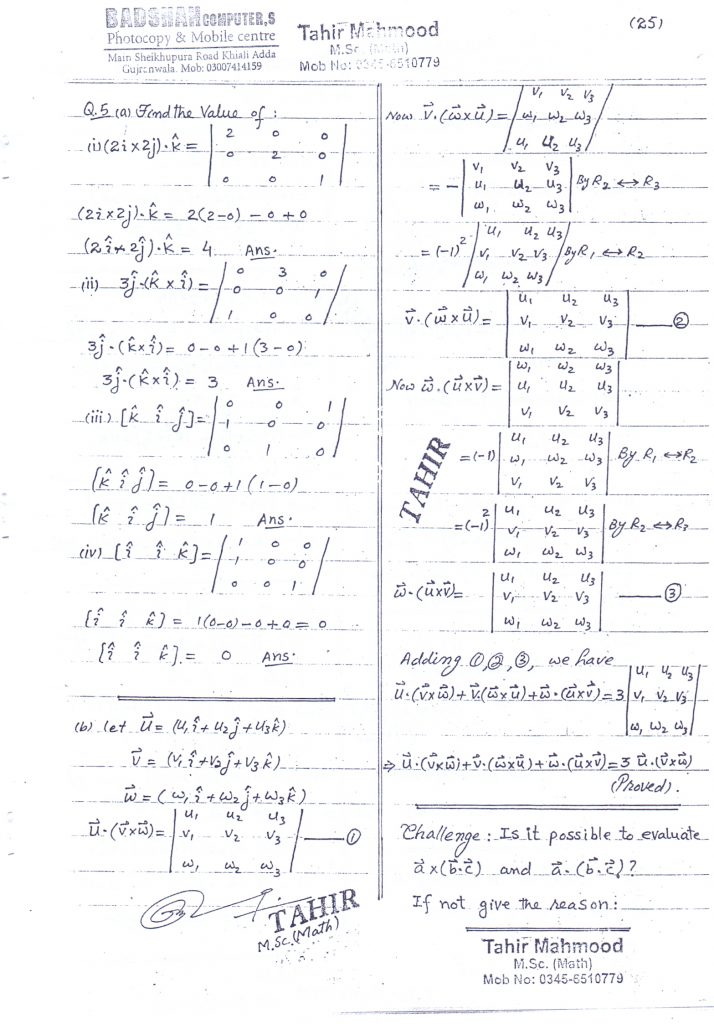 BADSHAH COMPUTER,S
Photocopy & Mobile centre
Main Sheikhupura Road Khiali Adda
Gujranwala. Mob: 03007414159
Tahir Mahmood
M.Sc. (Math)
Mob No: 0345-6510779
(25)
Q.5 (a) Find the Value of :
(i) (2i × 2j)·k̂ = | 2 0 0 |
| 0 2 0 |
| 0 0 1 |
(2i × 2j)·k̂ = 2(2-0) - 0 + 0
(2î × 2ĵ)·k̂ = 4 Ans.
(ii) 3ĵ·(k̂ × î) = | 0 3 0 |
| 0 0 1 |
| 1 0 0 |
3ĵ·(k̂ × î) = 0 - 0 + 1(3-0)
3ĵ·(k̂ × î) = 3 Ans.
(iii) [k̂ î ĵ] = | 0 0 1 |
| 1 0 0 |
| 0 1 0 |
[k̂ î ĵ] = 0 - 0 + 1(1-0)
[k̂ î ĵ] = 1 Ans.
(iv) [î î k̂] = | 1 0 0 |
| 1 0 0 |
| 0 0 1 |
[î î k̂] = 1(0-0) - 0 + 0 = 0
[î î k̂] = 0 Ans.
(b) let u⃗ = (u₁î + u₂ĵ + u₃k̂)
v⃗ = (v₁î + v₂ĵ + v₃k̂)
w⃗ = (w₁î + w₂ĵ + w₃k̂)
u⃗·(v⃗×w⃗) = | u₁ u₂ u₃ |
| v₁ v₂ v₃ | —— ①
| w₁ w₂ w₃ |
TAHIR
M.Sc.(Math)
Now v⃗·(w⃗×u⃗) = | v₁ v₂ v₃ |
| w₁ w₂ w₃ |
| u₁ u₂ u₃ |
= - | v₁ v₂ v₃ |
| u₁ u₂ u₃ | By R₂ ↔ R₃
| w₁ w₂ w₃ |
= (-1)² | u₁ u₂ u₃ |
| v₁ v₂ v₃ | By R₁ ↔ R₂
| w₁ w₂ w₃ |
v⃗·(w⃗×u⃗) = | u₁ u₂ u₃ |
| v₁ v₂ v₃ | —— ②
| w₁ w₂ w₃ |
Now w⃗·(u⃗×v⃗) = | w₁ w₂ w₃ |
| u₁ u₂ u₃ |
| v₁ v₂ v₃ |
TAHIR
= (-1) | u₁ u₂ u₃ |
| w₁ w₂ w₃ | By R₁ ↔ R₂
| v₁ v₂ v₃ |
= (-1)² | u₁ u₂ u₃ |
| v₁ v₂ v₃ | By R₂ ↔ R₃
| w₁ w₂ w₃ |
w⃗·(u⃗×v⃗) = | u₁ u₂ u₃ |
| v₁ v₂ v₃ | —— ③
| w₁ w₂ w₃ |
Adding ①,②,③, we have
u⃗·(v⃗×w⃗) + v⃗·(w⃗×u⃗) + w⃗·(u⃗×v⃗) = 3 | u₁ u₂ u₃ |
| v₁ v₂ v₃ |
| w₁ w₂ w₃ |
⇒ u⃗·(v⃗×w⃗) + v⃗·(w⃗×u⃗) + w⃗·(u⃗×v⃗) = 3 u⃗·(v⃗×w⃗)
(Proved).
Challenge : Is it possible to evaluate
a⃗ × (b⃗·c⃗) and a⃗·(b⃗·c⃗)?
If not give the reason:
Tahir Mahmood
M.Sc. (Math)
Mob No: 0345-6510779